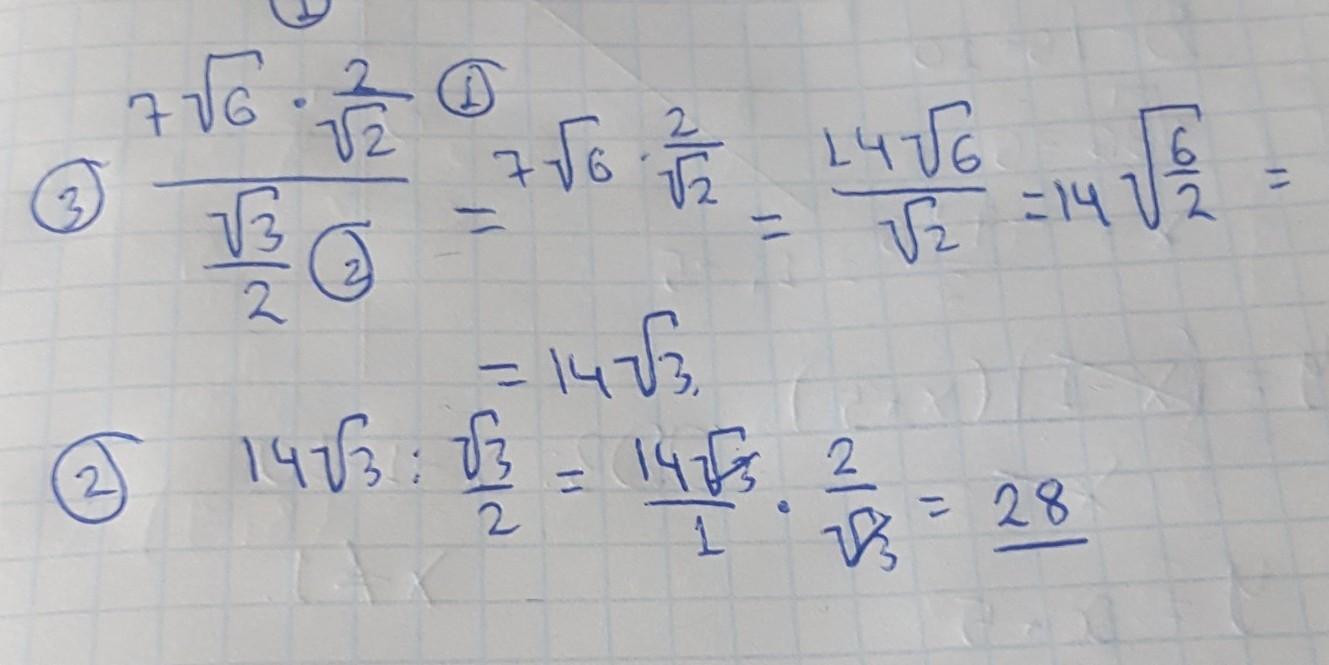 ①
③ (7√6 · 2/√2) ① / (√3/2) ② = 7√6 · 2/√2 = 14√6/√2 = 14√(6/2) =
= 14√3.
② 14√3 : √3/2 = 14√3/1 · 2/√3 = 28